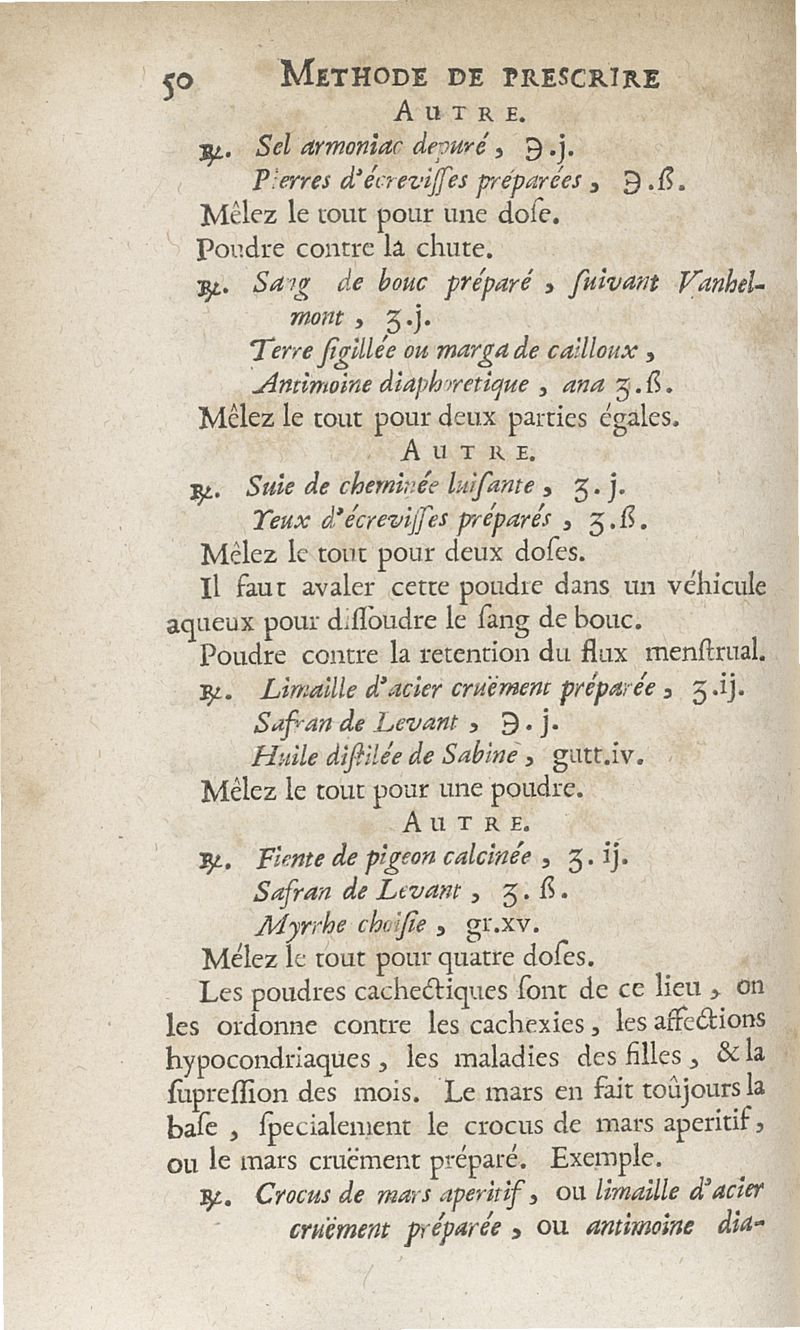 50 METHODE DE PRESCRIRE
AUTRE.
℞. Sel armoniac depuré, ℈.j.
Pierres d'écreviſſes préparées, ℈.ß.
Mêlez le tout pour une doſe.
Poudre contre la chute.
℞. Sang de bouc préparé, ſuivant Vanhel-
mont, ʒ.j.
Terre ſigillée ou marga de cailloux,
Antimoine diaphoretique, ana ʒ.ß.
Mêlez le tout pour deux parties égales.
AUTRE.
℞. Suie de cheminée luiſante, ʒ.j.
Yeux d'écreviſſes préparés, ʒ.ß.
Mêlez le tout pour deux doſes.
Il faut avaler cette poudre dans un véhicule
aqueux pour diſſoudre le ſang de bouc.
Poudre contre la retention du flux menſtrual.
℞. Limaille d'acier cruëment préparée, ʒ.ij.
Safran de Levant, ℈.j.
Huile diſtilée de Sabine, gutt.iv.
Mêlez le tout pour une poudre.
AUTRE.
℞. Fiente de pigeon calcinée, ʒ.ij.
Safran de Levant, ʒ.ß.
Myrrhe choiſie, gr.xv.
Mélez le tout pour quatre doſes.
Les poudres cachectiques ſont de ce lieu, on
les ordonne contre les cachexies, les affections
hypocondriaques, les maladies des filles, & la
ſupreſſion des mois. Le mars en fait toûjours la
baſe, ſpecialement le crocus de mars aperitif,
ou le mars cruëment préparé. Exemple.
℞. Crocus de mars aperitif, ou limaille d'acier
cruëment préparée, ou antimoine dia-